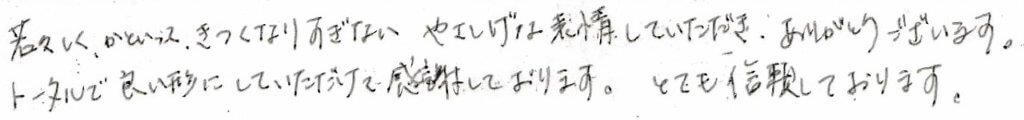 若々しく、かといって、きつくなりすぎない やさしげな表情していただき、ありがとうございます。
トータルで良い形にしていただけて感謝しております。 とても信頼しております。